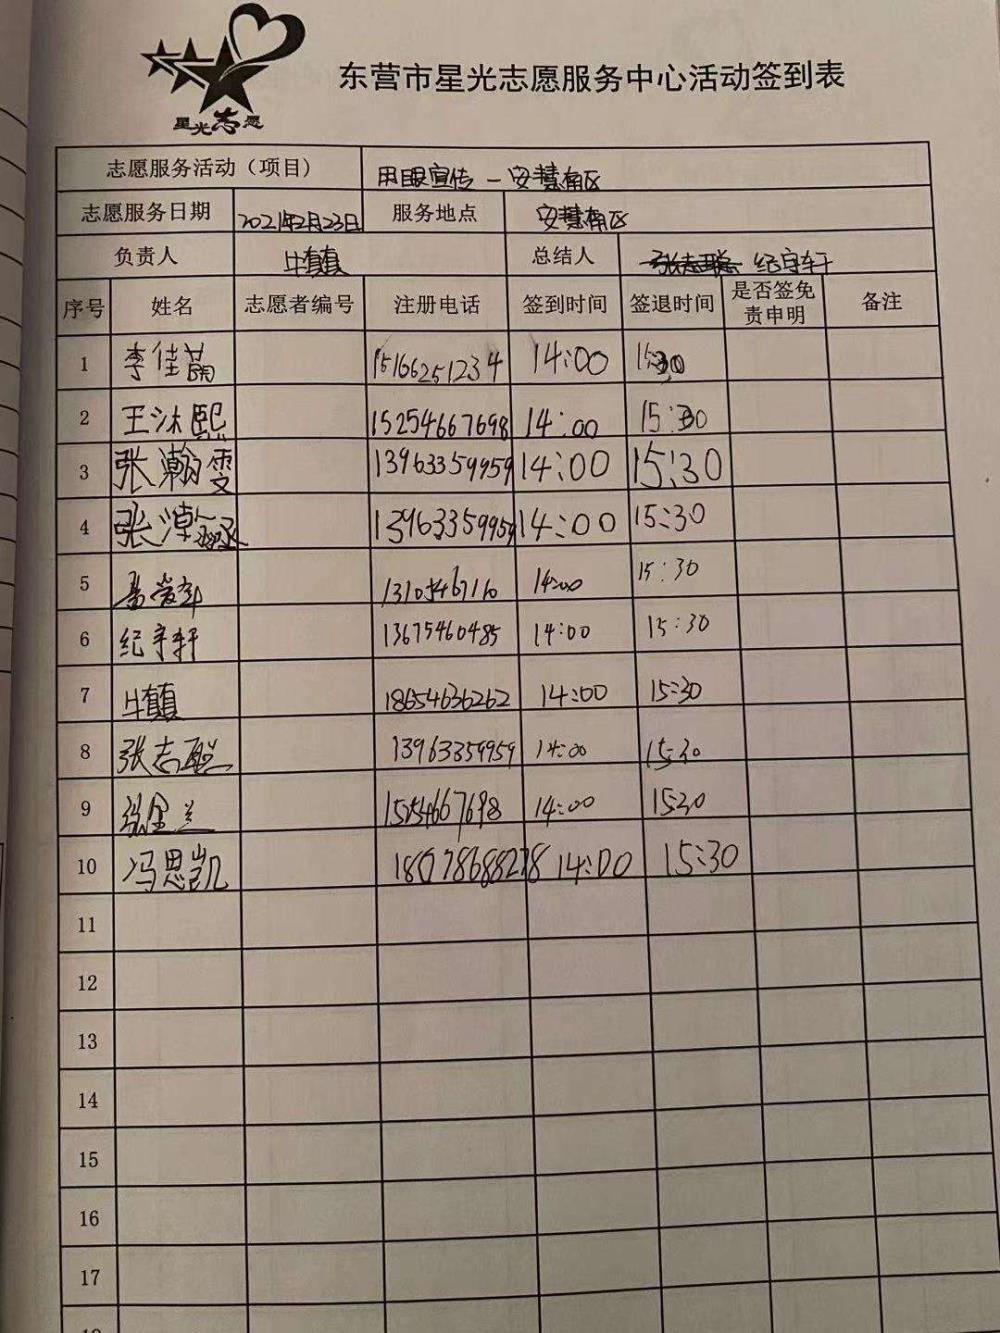 星光志愿
东营市星光志愿服务中心活动签到表
志愿服务活动（项目） 用眼宣传－安慧南区
志愿服务日期 2021年2月23日 服务地点 安慧南区
负责人 牛真真 总结人 纪宇轩
序号 姓名 志愿者编号 注册电话 签到时间 签退时间 是否签免责申明 备注
1 李佳 15166251234 14:00 15:30
2 王沐熙 15254667698 14:00 15:30
3 张瀚雯 13963359959 14:00 15:30
4 张 13963359959 14:00 15:30
5 14:00 15:30
6 纪宇轩 13675460485 14:00 15:30
7 18654636262 14:00 15:30
8 张志聪 13963359959 14:00 15:30
9 张金兰 15254667698 14:00 15:30
10 冯思凯 14:00 15:30
11
12
13
14
15
16
17